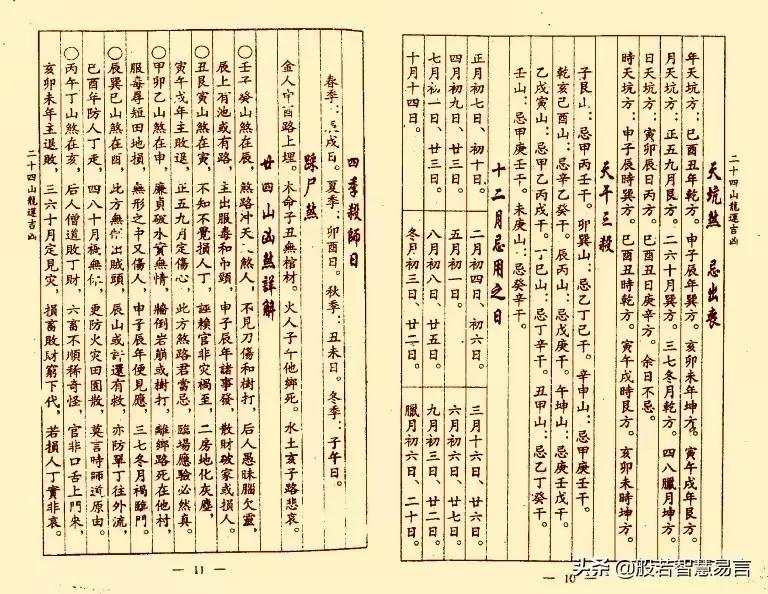 二十四山龍運吉凶
天坑煞　忌出喪
年天坑方：巳酉丑年乾方。申子辰年巽方。亥卯未年坤方。寅午戌年艮方。
月天坑方：正五九月艮方。二六十月巽方。三七冬月乾方。四八臘月坤方。
日天坑方：寅卯辰日丙方。巳酉丑日庚辛方。余日不忌。
時天坑方：申子辰時巽方。巳酉丑時乾方。寅午戌時艮方。亥卯未時坤方。
天干三殺
子艮山：忌甲丙壬干。卯巽山：忌乙丁己干。辛申山：忌甲庚壬干。
乾亥己酉山：忌辛乙癸干。辰丙山：忌戊庚壬干。午坤山：忌庚壬戊干。
乙戌寅山：忌甲乙丙戊干。丁巳山：忌丁辛干。丑甲山：忌乙丁癸干。
壬山：忌甲庚壬干。未庚山：忌癸辛干。
十二月忌用之日
正月初七日、初十日。二月初四日、初六日。三月十六日、廿六日。
四月初九日、廿三日。五月初一日。六月初六日、廿七日。
七月初一日、廿三日。八月初八日、廿五日。九月初三日、廿二日。
十月十四日。冬月初三日、廿二日。臘月初六日、二十日。
— 10 —
四季殺師日
春季：辰戌日。夏季：卯酉日。秋季：丑未日。冬季：子午日。
踩尸煞
金人申酉路上埋。木命子丑無棺材。火人子午他鄉死。水土亥子路悲哀。
廿四山凶煞詳解
○壬子癸山煞在辰，煞路冲天煞人。不見刀傷和樹打，后人愚昧腦欠靈，
辰上有池或有路，主出服毒和吊頸，申子辰年諸事發，散財破家或損人。
○丑艮寅山煞在寅，不知不覺損人丁，誣賴官非灾禍至，二房地化灰塵，
寅午戌年主敗退，正五九月定傷心，此方煞路君當忌，臨場應驗必然真。
○甲卯乙山煞在申，廉貞破水貧無情，牆倒岩崩或樹打，離鄉路死在他村，
服毒尋短田地損，無形之中又傷人，申子辰年便見應，三七冬月禍臨門。
○辰巽巳山煞在酉，此方無出賊頭，辰山或還有救，亦防單丁往外流，
巳酉年防人丁走，四八十月，更防火灾田園散，莫言時師道原由。
○丙午丁山煞在亥，后人僧道敗丁財，六畜不順稀奇怪，官非口舌上門來，
亥卯未年主退敗，三六十月定見灾，損畜敗財窮下代，若損人丁實非哀。
二十四山龍運吉凶
— 11 —
头条 @般若智慧易言